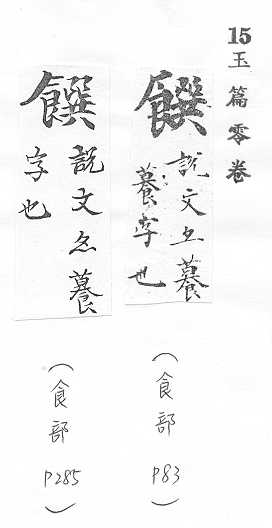 15玉篇零卷
饌
說文
字也
(食部 P83)
饌
說文
字也
(食部 P285)